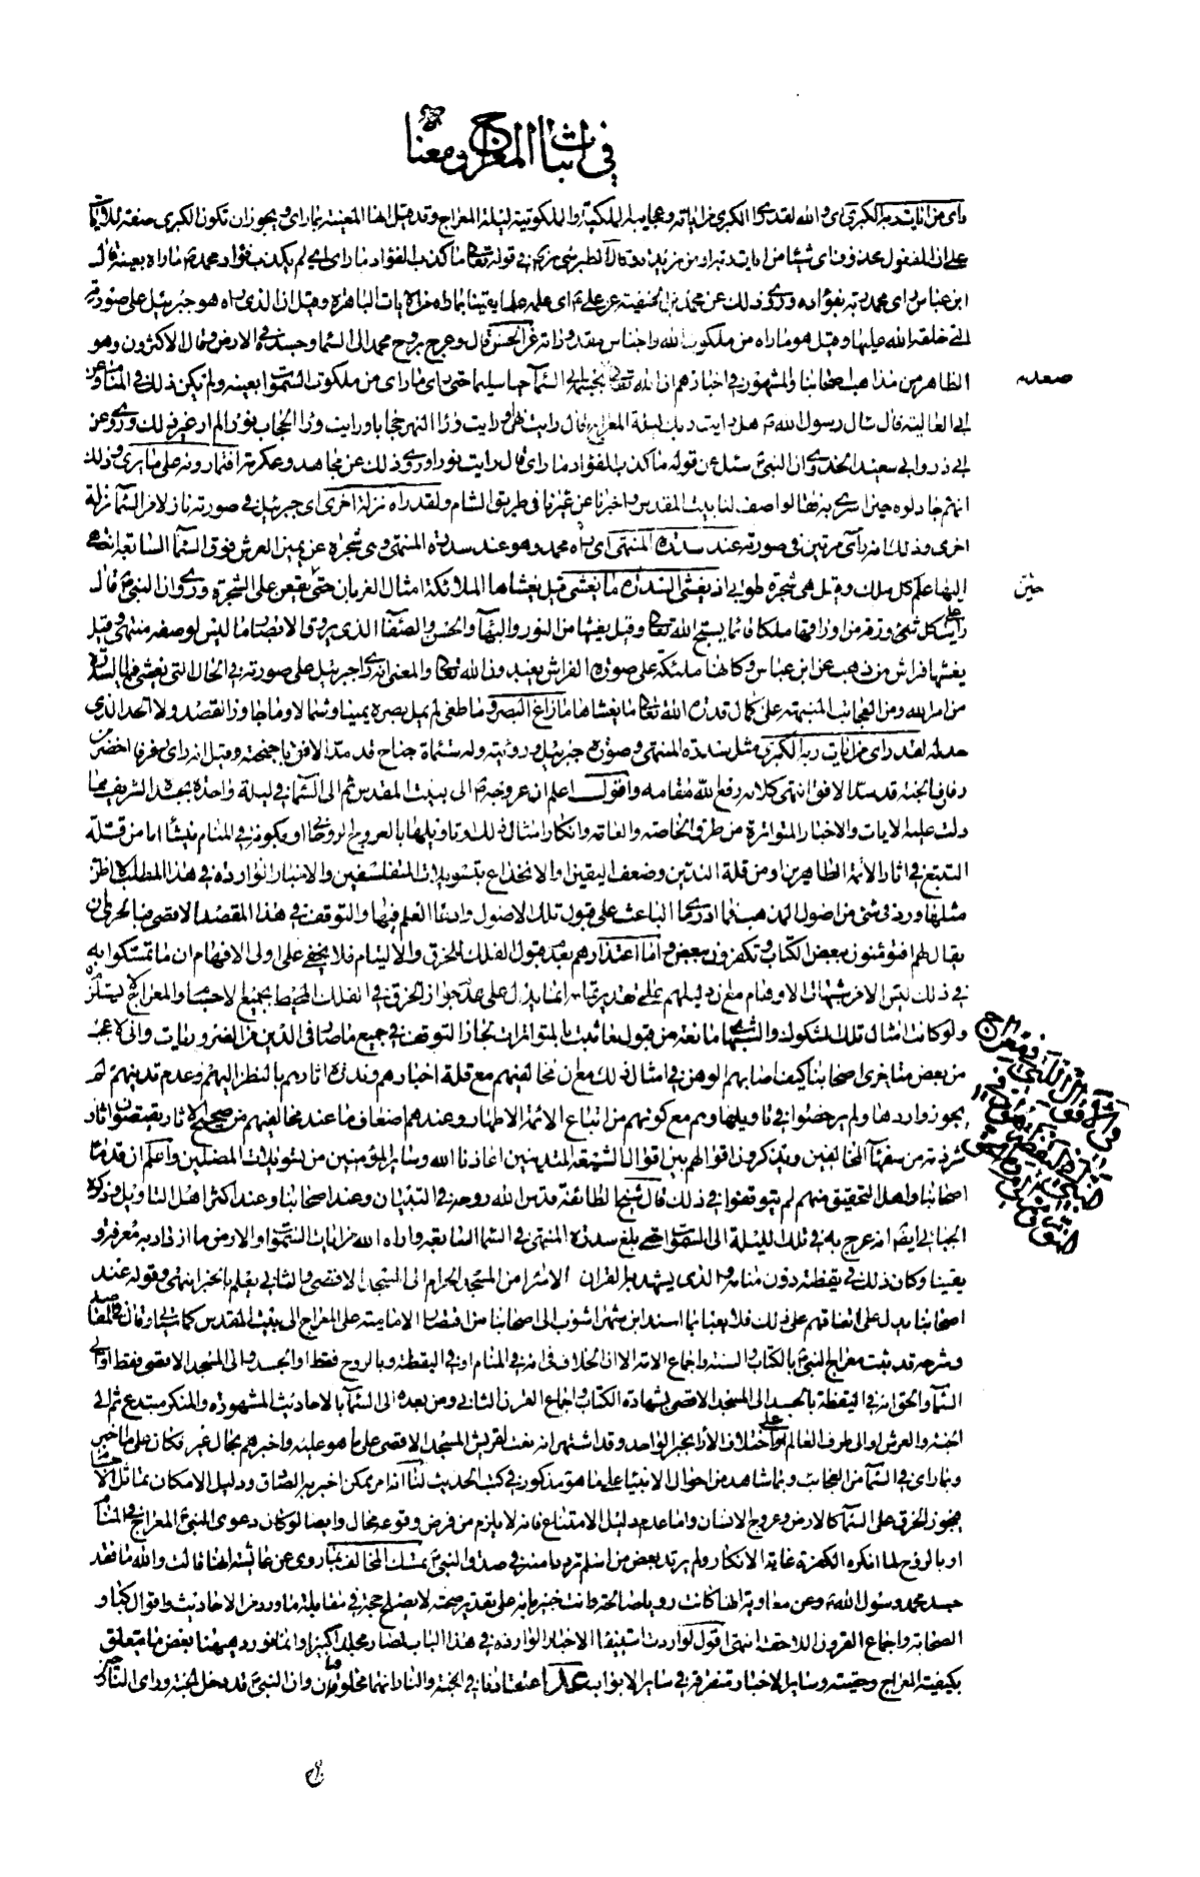 في اثبات المعراج ومعناه
راى من ايات ربه الكبرى اى والله لقد راى الكبرى من اياته وعجايبه الملكية والملكوتية ليلة المعراج وقد قيل انها المعنية بما راى ويجوز ان تكون الكبرى صفة للايات
على ان المفعول محذوف اى شيئا من ايات ربه او من مزيدة وقال الطبرسى ره في قوله تعالى ما كذب الفؤاد ما راى اى لم يكذب فؤاد محمد ما راه بعينه قال
ابن عباس راى محمد ربه بفؤاده وروى ذلك عن محمد بن الحنفية عن على ع اى علمه علما يقينا بما راه من الايات الباهرة وقيل ان الذى راه هو جبرئيل على صورته
التى خلقه الله عليها وقيل هو ما راه من ملكوت الله واجناس مقدوراته عن الحسن قال وعرج بروح محمد الى السماء وجسده في الارض وقال الاكثرون وهو
الظاهر من مذاهب اصحابنا والمشهور في اخبارهم ان الله تعالى صعد بجسمه الى السماء حيا سليما حتى راى ما راى من ملكوت السموات بعينه ولم يكن ذلك في المنام وعن
ابى العالية قال سئل رسول الله ص هل رايت ربك ليلة المعراج قال رايت نهرا ورايت وراء النهر حجابا ورايت وراء الحجاب نورا لم ار غير ذلك وروى عن
ابى ذر وابى سعيد الخدرى ان النبى ص سئل عن قوله ما كذب الفؤاد ما راى قال رايت نورا وروى ذلك عن مجاهد وعكرمة افتمارونه على ما يرى وذلك
انهم جادلوه حين اسرى به فقالوا صف لنا بيت المقدس واخبرنا عن عيرنا في طريق الشام ولقد راه نزلة اخرى اى جبرئيل في صورته نازلا من السماء نزلة
اخرى وذلك انه راى مرتين في صورته عند سدرة المنتهى اى راه محمد وهو عند سدرة المنتهى وهى شجرة عن يمين العرش فوق السماء السابعة انتهى
اليها علم كل ملك وقيل هى شجرة طوبى اذ يغشى السدرة ما يغشى قيل يغشاها الملائكة امثال الغربان حتى يقعن على الشجرة وروى ان النبى ص قال
رايت على كل شئ ورقة من اوراقها ملكا قائما يسبح الله تعالى وقيل يغشها من النور والبهاء والحسن والصفاء الذى يروق الابصار ما ليس لوصفه منتهى وقيل
يغشها فراش من ذهب عن ابن عباس وكانها ملئكة على صورة الفراش يعبدون الله تعالى والمعنى انه راى جبرئيل على صورته في الحال التى يغشى فيها السدرة
من امر الله ومن العجائب المنبهة على كمال قدرة الله تعالى ما يغشاها ما زاغ البصر وما طغى لم يمل بصره يمينا وشمالا وما جاوز القصد ولا الحد الذى
حد له لقد راى من ايات ربه الكبرى مثل سدرة المنتهى وصورة جبرئيل ورؤيته وله ستمائة جناح قد سد الافق باجنحته وقيل انه راى رفرفا اخضر من
رفارف الجنة قد سد الافق انتهى كلامه رفع الله مقامه واقول اعلم ان عروجه ص الى بيت المقدس ثم الى السماء في ليلة واحدة بجسده الشريف مما
دلت عليه الايات والاخبار المتواترة من طرق الخاصة والعامة وانكار امثال ذلك وتاويلها بالعروج الروحانى او بكونه في المنام ينشا اما من قلة
التتبع في اثار الائمة الطاهرين او من قلة التدين وضعف اليقين او الانخداع بتسويلات المتفلسفين والاخبار الواردة في هذا المطلب لا اظن
مثلها ورد في شئ من اصول المذهب فما ادرى ما الباعث على قبول تلك الاصول وادعاء العلم فيها والتوقف في هذا المقصد الاقصى فبالحرى ان
يقال لهم افتؤمنون ببعض الكتاب وتكفرون ببعض واما اعتذارهم بعدم قبول الفلك للخرق والالتيام فلا يخفى على اولى الافهام ان ما تمسكوا به
في ذلك ليس الا من شبهات الاوهام مع ان دليلهم على تقدير تمامه انما يدل على عدم جواز الخرق في الفلك المحيط بجميع الاجسام والمعراج لا يستلزمه
ولو كانت امثال تلك الشكوك والشبهات مانعة من قبول ما ثبت بالمتواترات لجاز التوقف في جميع ما صار في الدين من الضروريات وانى لاعجب
من بعض متاخرى اصحابنا كيف اصابهم الوهن في امثال ذلك مع ان مخالفيهم مع قلة اخبارهم وندرة اثارهم بالنظر اليهم وعدم تدينهم لم
يجوزوا ردها ولم يرخصوا في تاويلها وهم مع كونهم من اتباع الائمة الاطهار وعندهم اضعاف ما عند مخالفيهم من صحيح الاثار يقتصون اثار
شرذمة من سفهاء المخالفين ويذكرون اقوالهم بين اقوال الشيعة المتدينين اعاذنا الله وساير المؤمنين من تسويلات المضلين واعلم ان قدماء
اصحابنا واهل التحقيق منهم لم يتوقفوا في ذلك قال شيخ الطائفة قدس الله روحه في التبيان وعند اصحابنا وعند اكثر اهل التاويل وذكره
الجبائى ايضا انه عرج به في تلك الليلة الى السموات حتى بلغ سدرة المنتهى في السماء السابعة واراه الله من ايات السموات والارض ما ازداد به معرفة و
يقينا وكان ذلك في يقظته دون منامه والذى يشهد به القران الاسراء من المسجد الحرام الى المسجد الاقصى والثانى يعلم بالخبر انتهى وقوله عند
اصحابنا يدل على اتفاقهم على ذلك فلا يعبا بما اسند ابن شهراشوب الى اصحابنا من اقتصار الامامية على المعراج الى بيت المقدس كما سياتى وقال في المقاصد
وشرحه قد ثبت معراج النبى ص بالكتاب والسنة واجماع الامة الا ان الخلاف في انه في المنام او في اليقظة وبالروح فقط او الجسد والى المسجد الاقصى فقط او الى
السماء والحق انه في اليقظة بالجسد الى المسجد الاقصى بشهادة الكتاب واجماع القرن الثانى ومن بعده الى السماء بالاحاديث المشهورة والمنكر مبتدع ثم الى
الجنة والعرش او الى طرف العالم على اختلاف الاراء بخبر الواحد وقد اشتهر انه نعت لقريش المسجد الاقصى على ما هو عليه واخبرهم بحال عيرهم فكان على ما اخبر
وبما راى في السماء من العجائب وبما شاهد من احوال الانبياء على ما هو مذكور في كتب الحديث لنا انه امر ممكن اخبر به الصادق ودليل الامكان تماثل الاجسام
فيجوز الخرق على السماء كالارض وعروج الانسان واما عدم دليل الامتناع فانه لا يلزم من فرض وقوعه محال وايضا لو كان دعوى النبى ص المعراج في المنام
او بالروح لما انكره الكفرة غاية الانكار ولم يرتد بعض من اسلم ترددا منه في صدق النبى ص تمسك المخالف بما روى عن عائشة انها قالت والله ما فقد
جسد محمد رسول الله ص وعن معاوية انها كانت رويا صالحة وانت خبير بانه على تقدير صحته لا يصلح حجة في مقابلة ما ورد من الاحاديث واقوال كبار
الصحابة واجماع القرون اللاحقة انتهى اقول لو اردت استيفاء الاخبار الواردة في هذا الباب لصار مجلدا كبيرا وانما نورد ههنا بعض ما يتعلق
بكيفية المعراج وحقيته وساير الاخبار متفرقة في ساير الابواب عد اعتقادنا في الجنة والنار انهما مخلوقتان وان النبى ص قد دخل الجنة وراى النار حين
صعد به
حين